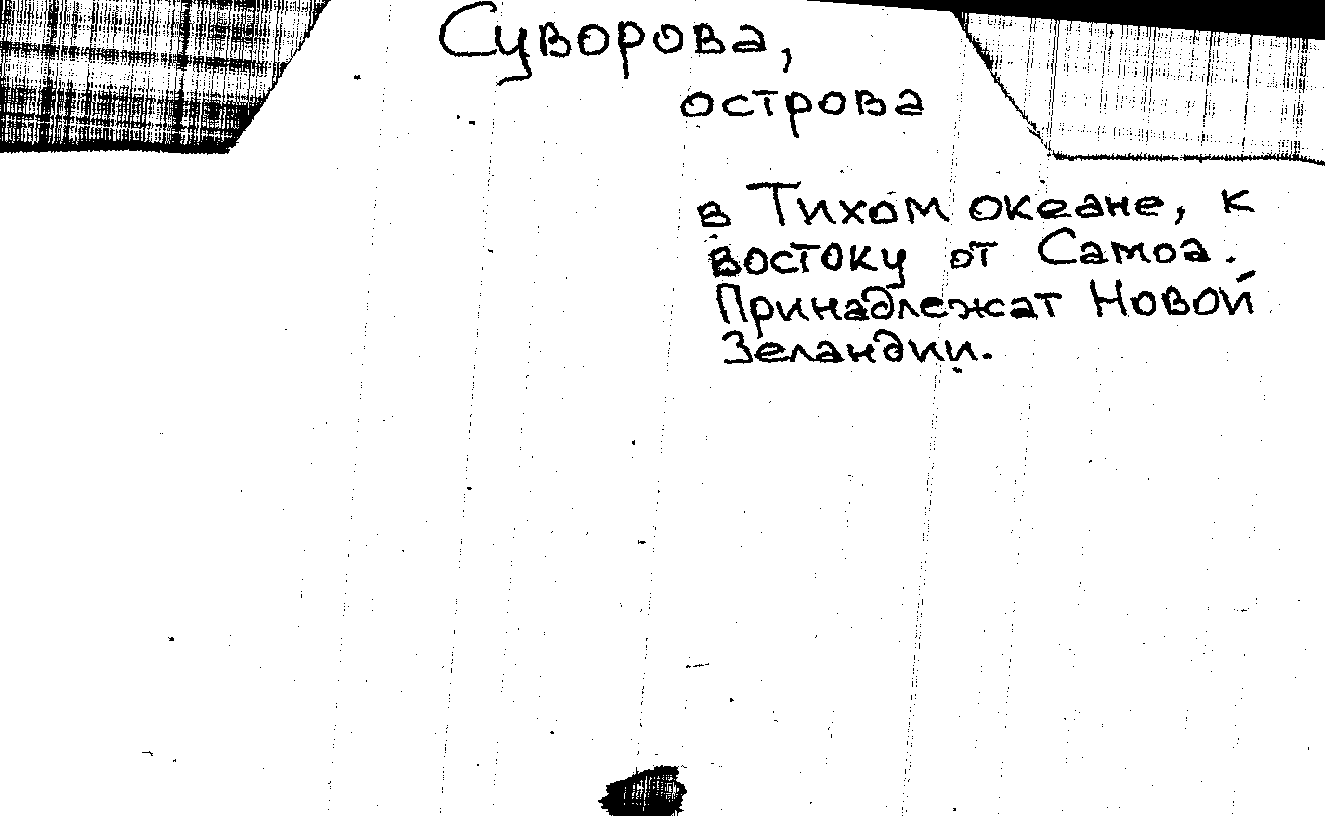 Суворова,
острова
в Тихом океане, к
востоку от Самоа.
Принадлежат Новой
Зеландии.